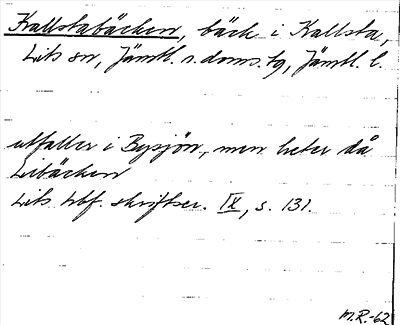 Kallstabäcken, bäck i Kallsta,
Lits sn, Jämtl. n. doms. tg, Jämtl. l.
utfaller i Bysjön, men heter då
Lebäcken
Lits hbf. skriftser. IX, s. 131.
M.R.-62